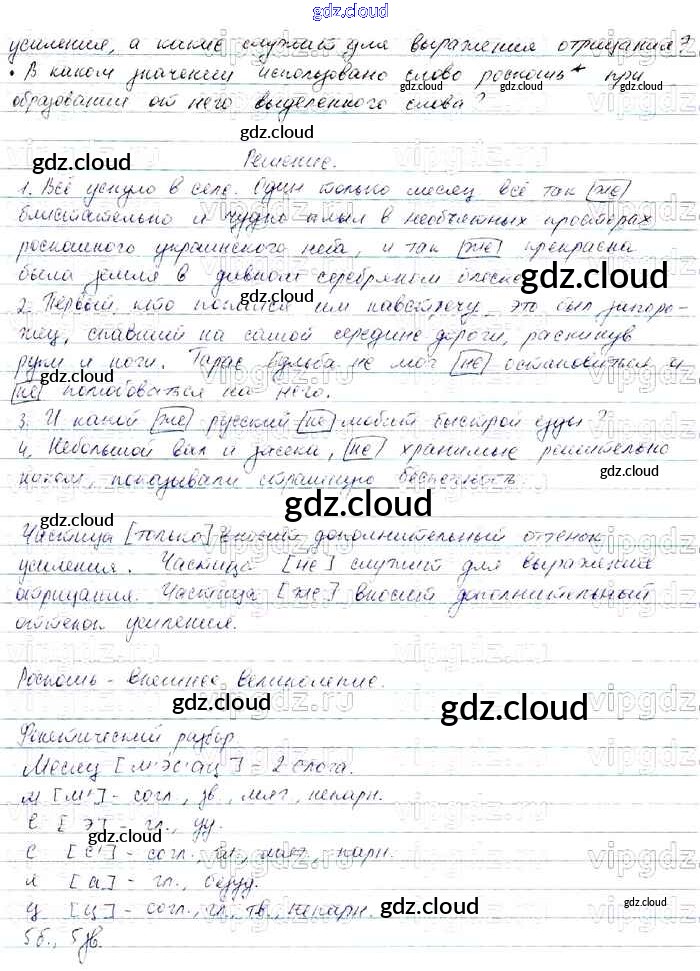 gdz.cloud
усиления, а какие служит для выражения отрицания?
• В каком значении использовано слово роскошь* при
образовании от него выделенного слова?
Решение.
1. Всё уснуло в селе. Один только месяц всё так же
блистательно и чудно плыл в необъятных просторах
роскошного украинского неба, и так же прекрасна
была земля в дивном серебряном
2. Первый, кто попался им навстречу, это был запоро-
жец, спавший на самой середине дороги, раскинув
руки и ноги. Тарас Бульба не мог не остановиться и
не полюбоваться на него.
3. И какой же русский не любит быстрой езды?
4. Небольшой вал и засека, не хранимые решительно
никем, показывали страшную беспечность.
Частица [только] вносит дополнительный оттенок
усиления. Частица [не] служит для выражения
отрицания. Частица [же] вносит дополнительный
оттенок усиления.
Роскошь - внешнее великолепие.
Фонетический разбор
Месяц [м'эс'ац] - 2 слога.
м [м'] - согл., зв., мяг., непарн.
е [э] - гл., уд.
с [с'] - согл., гл., мяг., парн.
я [а] - гл., безуд.
ц [ц] - согл., гл., тв., непарн.
5 б., 5 зв.